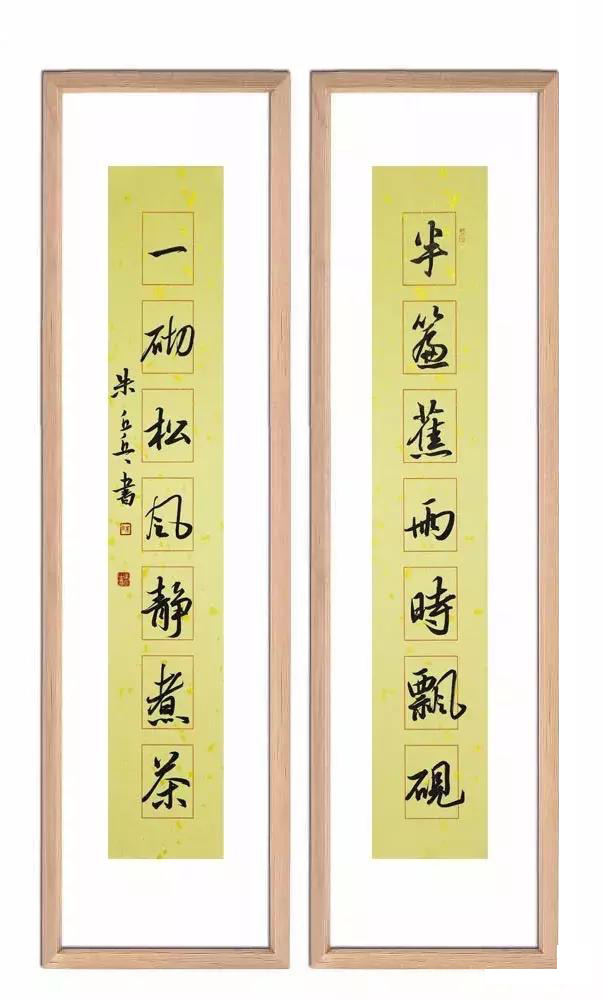 半簾蕉雨時飄硯
一砌松風静煮茶
朱丘兵書